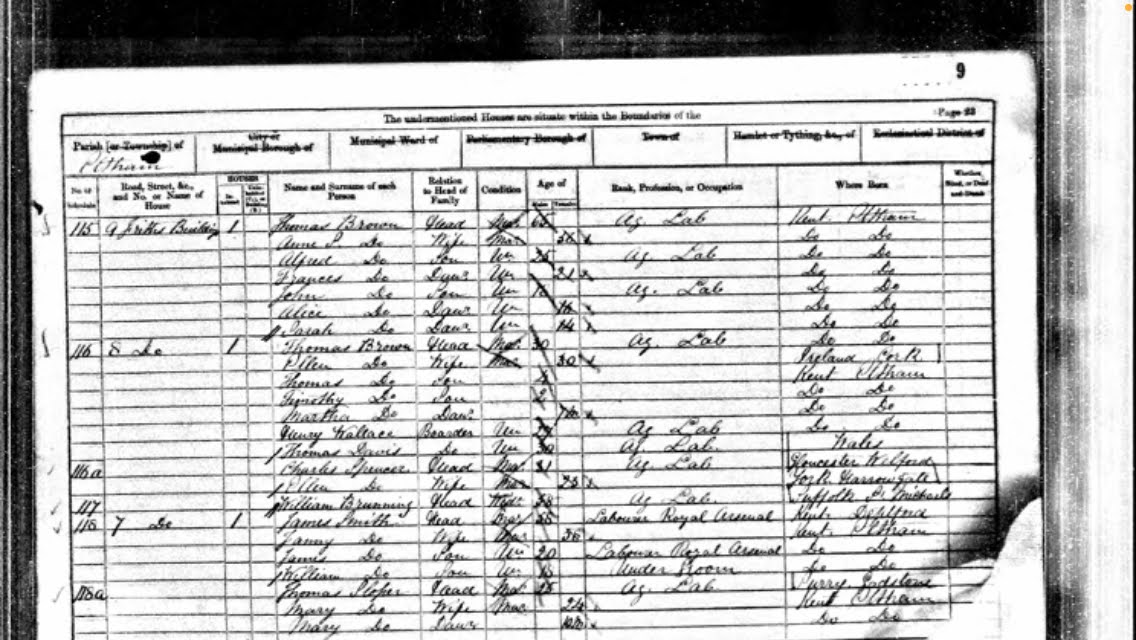 9
The undermentioned Houses are situate within the Boundaries of the
Page 23
Parish [or Township] of
City or Municipal Borough of
Municipal Ward of
Parliamentary Borough of
Town of
Hamlet or Tything, &c., of
Ecclesiastical District of
Eltham
No. of Schedule
Road, Street, &c., and No. or Name of House
HOUSES
Name and Surname of each Person
Relation to Head of Family
Condition
Age of
Males Females
Rank, Profession, or Occupation
Where Born
Whether Blind, or Deaf-and-Dumb
115 9 Buildings 1 Thomas Brown Head Mar 65 Ag Lab Kent Eltham
Anne Do Wife Mar Do Do
Alfred Do Son Un 25 Ag Lab Do Do
Frances Do Daur Un 21 Do Do
John Do Son Un Ag. Lab Do Do
Alice Do Daur Un 16 Do Do
Sarah Do Daur Un 14 Do Do
116 8 Do 1 Thomas Brown Head Mar 30 Ag Lab Do Do
Ellen Do Wife Mar 30 Ireland Cork
Thomas Do Son 4 Kent Eltham
Timothy Do Son 2 Do Do
Martha Do Daur Do Do
Henry Wallace Boarder Un Ag Lab Do Do
Thomas Davis Do Un 30 Ag. Lab. Wales
116a Charles Spencer Head Mar 31 Ag Lab Gloucester Welford
Ellen Do Wife Mar York Harrowgate
117 William Brunning Head 38 Ag Lab. Suffolk St Michaels
118 7 Do 1 James Smith Head Mar Labourer Royal Arsenal Kent Deptford
Fanny Do Wife Mar Kent Eltham
James Do Son Un 20 Labourer Royal Arsenal Do Do
William Do Son Un Under Groom Do Do
118a Thomas Sloper Head Mar 25 Ag Lab. Surry Godstone
Mary Do Wife Mar 24 Kent Eltham
Mary Do Daur Do Do